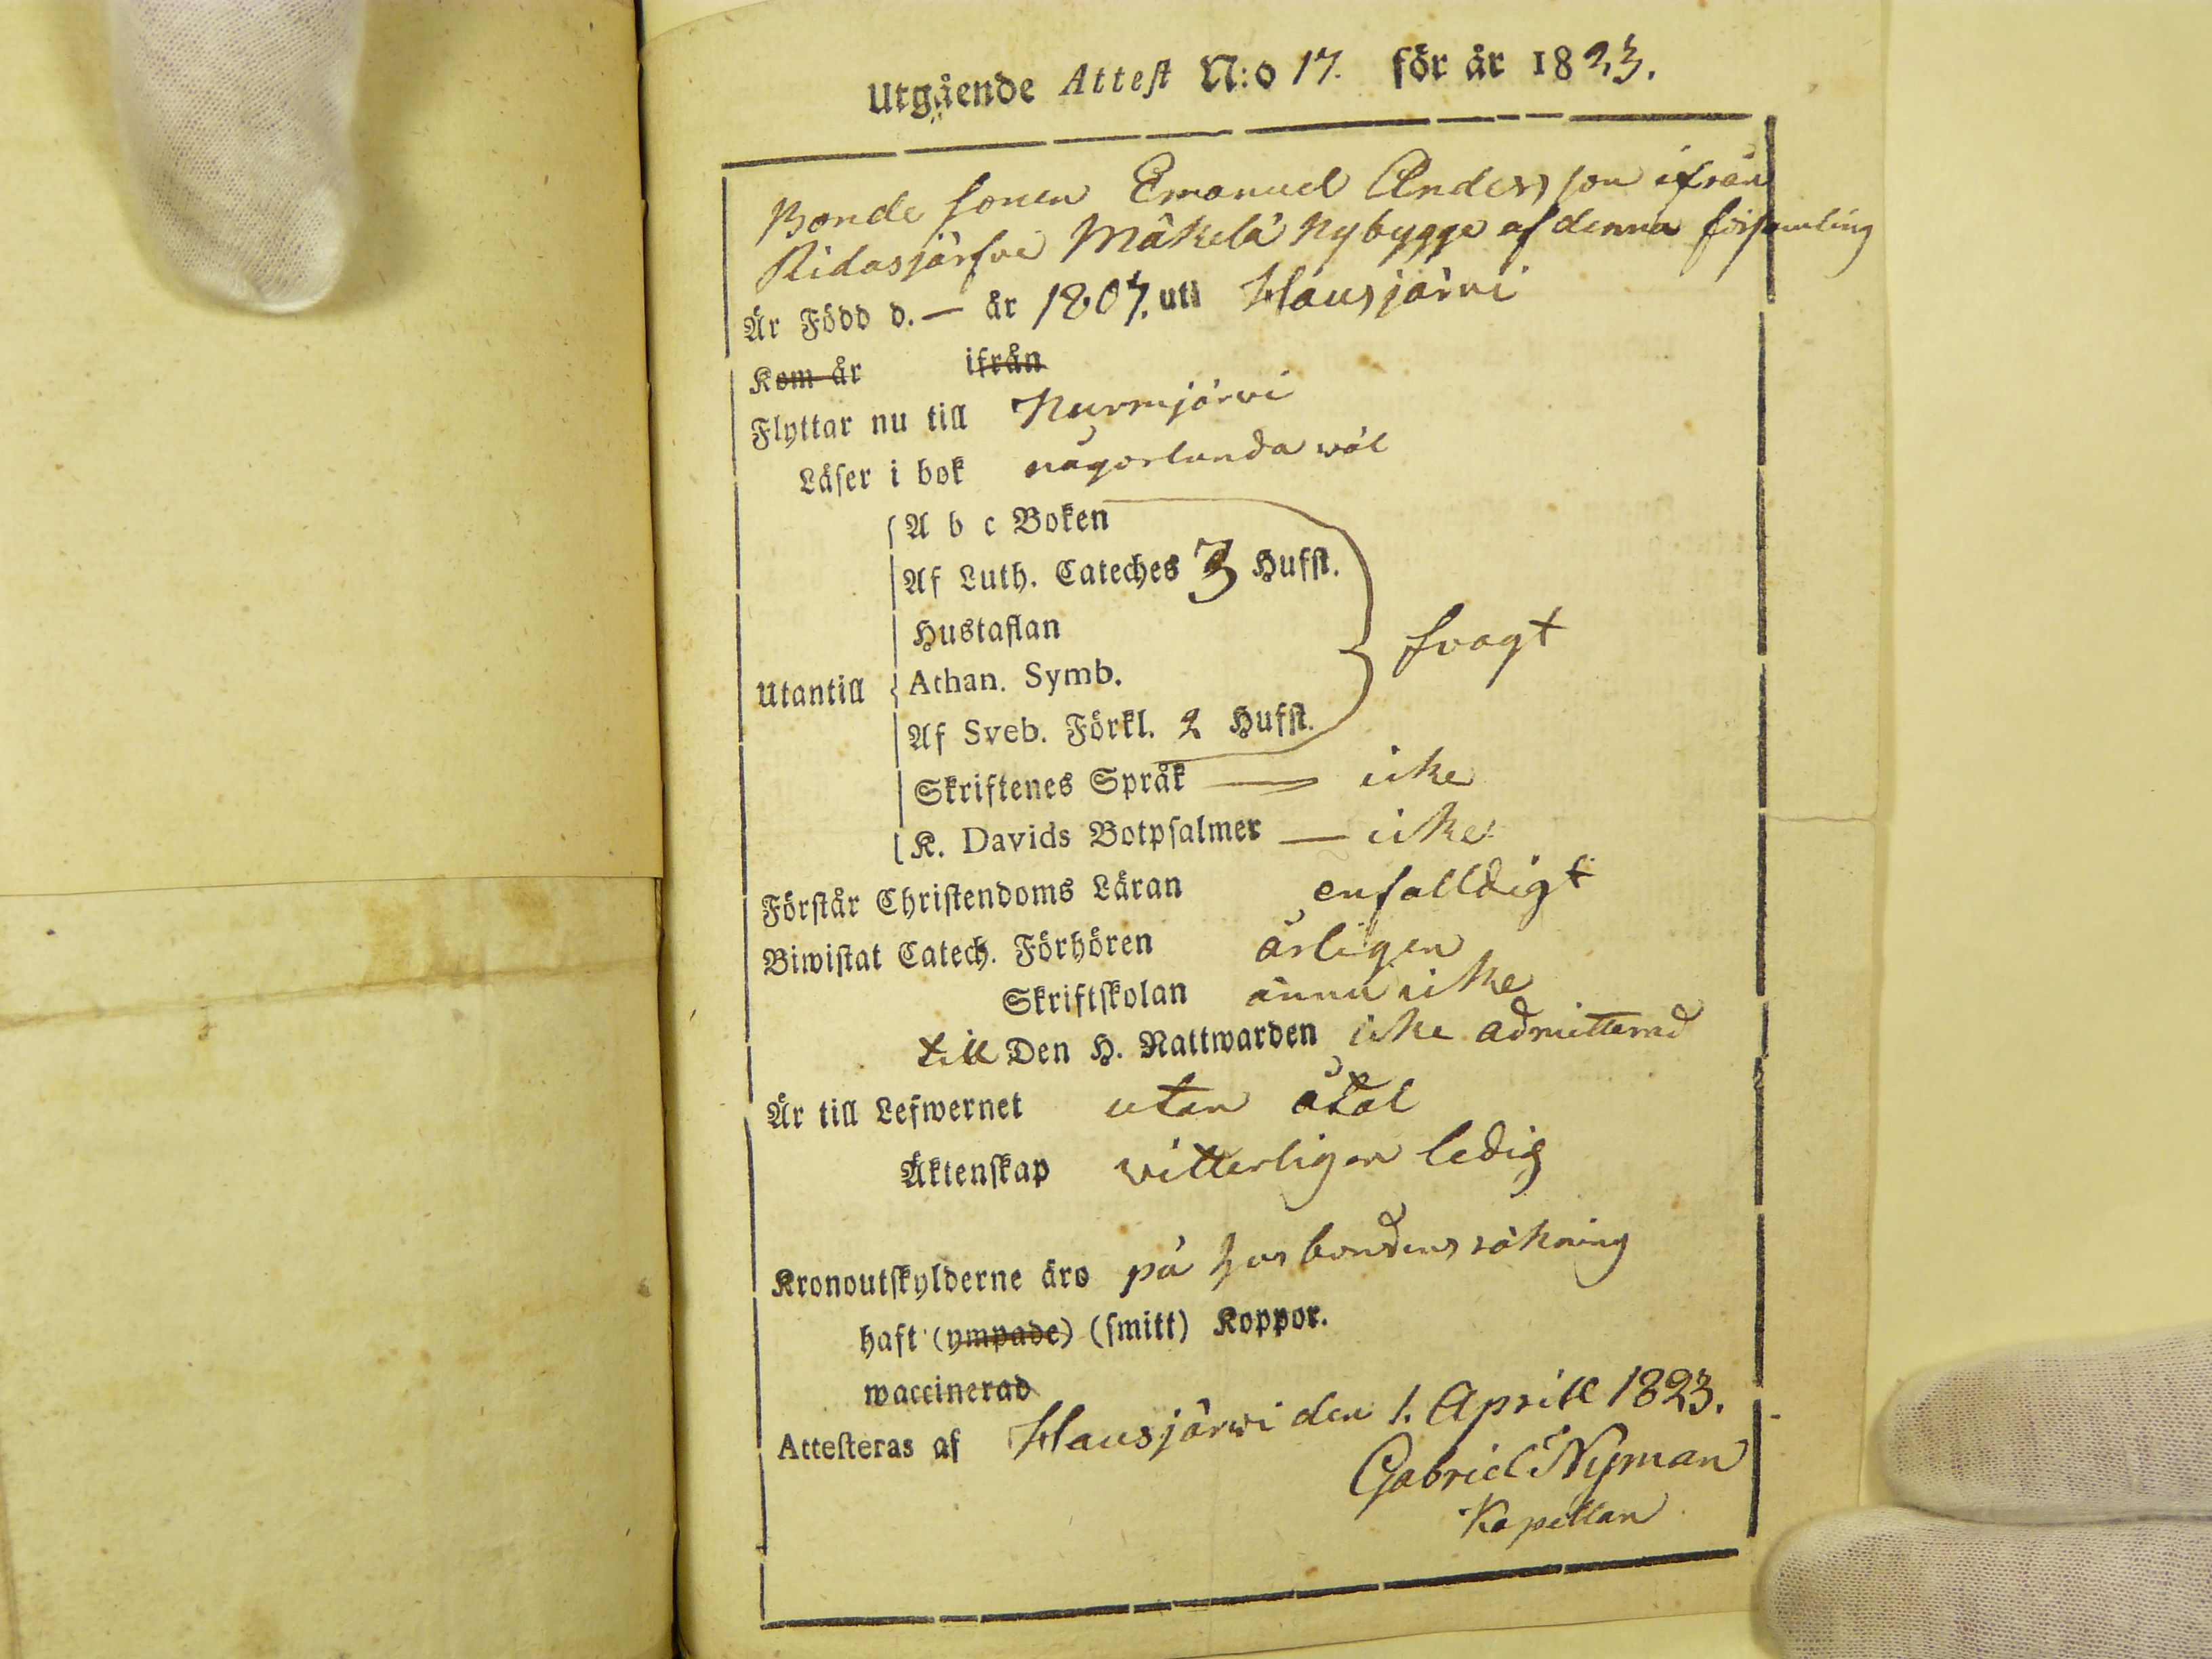 Utgående Attest N:o 17. för år 1823.
Bonde sonen Emanuel Andersson ifrån
Ridasjärfve Mäkelä Nybygge af denna församling
Är Född d. — år 1807. uti Hausjärvi
Kom år ifrån
Flyttar nu till Nurmijärvi
Läser i bok någorlunda wäl
A b c Boken
Af Luth. Cateches 3 Hufst.
Hustaflan
Utantill Athan. Symb. svagt
Af Sveb. Förkl. 2 Hufst.
Skriftenes Språk — icke
K. Davids Botpsalmer — icke
Förstår Christendoms Läran enfalldigt
Biwistat Catech. Förhören årligen
Skriftskolan ännu icke
till Den H. Nattwarden icke admitterad
Är till Lefwernet utan åtal
Äktenskap witterligen ledig
Kronoutskylderne äro på husbondens räkning
haft (ympade) (smitt) Koppor.
waccinerad
Attesteras af Hausjärwi den 1. Aprill 1823.
Gabriel Nyman
Kapellan